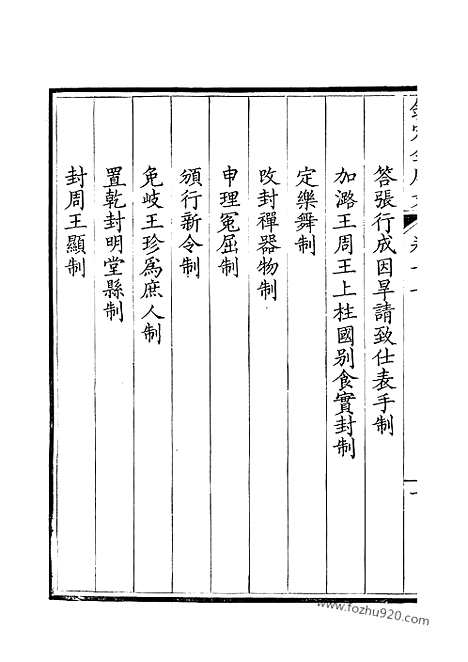 答張行成因旱請致仕表手制
加潞王周王上柱國别食實封制
定樂舞制
改封禪器物制
申理冤屈制
頒行新令制
免岐王珍爲庶人制
置乾封明堂縣制
封周王顯制
www.fozhu920.com